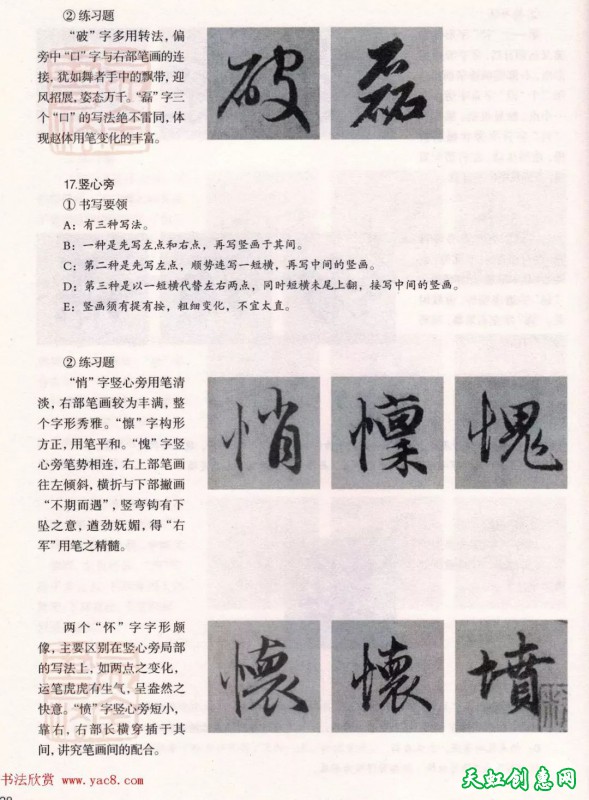 ② 练习题
“破”字多用转法，偏
旁中“口”字与右部笔画的连
接，犹如舞者手中的飘带，迎
风招展，姿态万千。“磊”字三
个“口”的写法绝不雷同，体
现赵体用笔变化的丰富。
破 磊
17.竖心旁
① 书写要领
A：有三种写法。
B：一种是先写左点和右点，再写竖画于其间。
C：第二种是先写左点，顺势连写一短横，再写中间的竖画。
D：第三种是以一短横代替左右两点，同时短横末尾上翻，接写中间的竖画。
E：竖画须有提有按，粗细变化，不宜太直。
② 练习题
“悄”字竖心旁用笔清
淡，右部笔画较为丰满，整
个字形秀雅。“懔”字构形
方正，用笔平和。“愧”字竖
心旁笔势相连，右上部笔画
往左倾斜，横折与下部撇画
“不期而遇”，竖弯钩有下
坠之意，遒劲妩媚，得“右
军”用笔之精髓。
悄 懔 愧
两个“怀”字字形颇
像，主要区别在竖心旁局部
的写法上，如两点之变化，
运笔虎虎有生气，呈盎然之
快意。“愤”字竖心旁短小，
靠右，右部长横穿插于其
间，讲究笔画间的配合。
懷 懷 憤
书法欣赏 www.yac8.com
天虹创意网